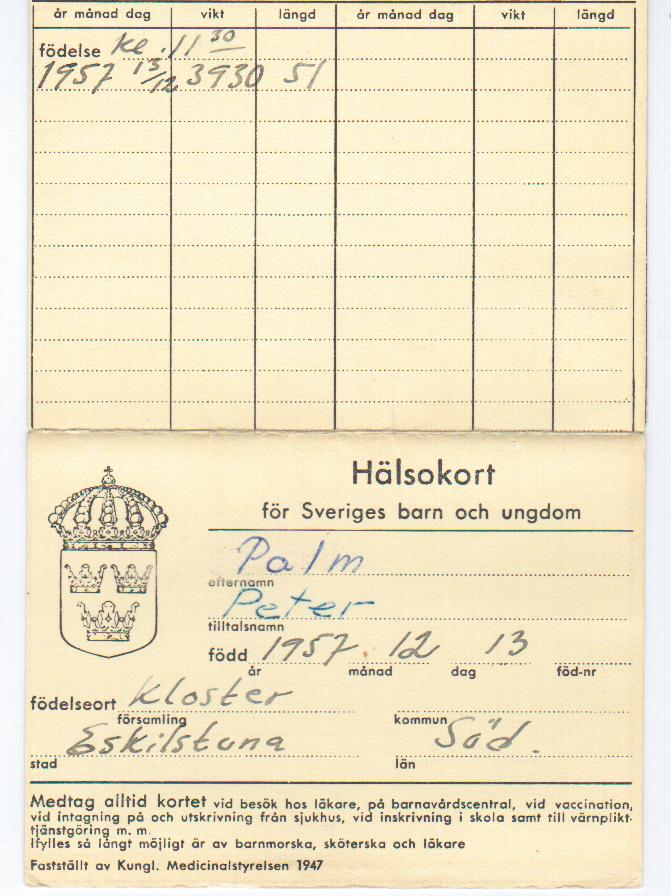 år månad dag vikt längd år månad dag vikt längd
födelse kl. 11 30
1957 13/12 3930 51
Hälsokort
för Sveriges barn och ungdom
Palm
efternamn
Peter
tilltalsnamn
född 1957. 12 13
år månad dag föd-nr
födelseort Kloster
församling kommun
Eskilstuna Söd.
stad län
Medtag alltid kortet vid besök hos läkare, på barnavårdscentral, vid vaccination,
vid intagning på och utskrivning från sjukhus, vid inskrivning i skola samt till värnplikt-
tjänstgöring m. m.
Ifylles så långt möjligt är av barnmorska, sköterska och läkare
Fastställt av Kungl. Medicinalstyrelsen 1947